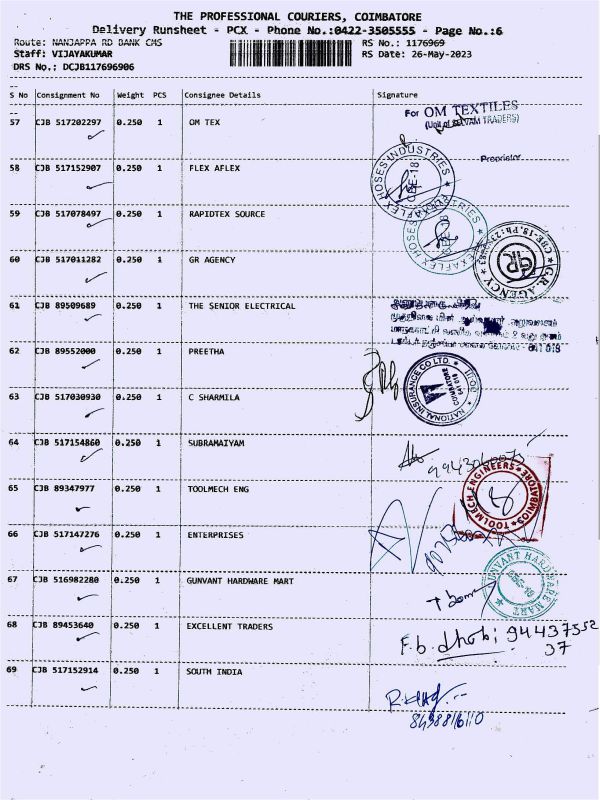 THE PROFESSIONAL COURIERS, COIMBATORE
Delivery Runsheet - PCX - Phone No.:0422-3505555 - Page No.:6
Route: NANJAPPA RD BANK CMS
RS No.: 1176969
Staff: VIJAYAKUMAR
RS Date: 26-May-2023
DRS No.: DCJB117696906
S No Consignment No Weight PCS Consignee Details Signature
57 CJB 517202297 0.250 1 OM TEX
For OM TEXTILES
(Unit of SELVAM TRADERS)
Proprietor
58 CJB 517152907 0.250 1 FLEX AFLEX
FLEXAFLEX HOSES INDUSTRIES
CBE-18
59 CJB 517078497 0.250 1 RAPIDTEX SOURCE
60 CJB 517011282 0.250 1 GR AGENCY
GR
G.R. AGENCY
61 CJB 89509689 0.250 1 THE SENIOR ELECTRICAL
641 018
62 CJB 89552000 0.250 1 PREETHA
NATIONAL INSURANCE CO LTD
COIMBATORE
641 018
63 CJB 517030930 0.250 1 C SHARMILA
64 CJB 517154860 0.250 1 SUBRAMAIYAM
65 CJB 89347977 0.250 1 TOOLMECH ENG
TOOLMECH ENGINEERS
COIMBATORE
66 CJB 517147276 0.250 1 ENTERPRISES
67 CJB 516982280 0.250 1 GUNVANT HARDWARE MART
GUNVANT HARDWARE MART
68 CJB 89453640 0.250 1 EXCELLENT TRADERS
F.b. dhobi 94437552
37
69 CJB 517152914 0.250 1 SOUTH INDIA